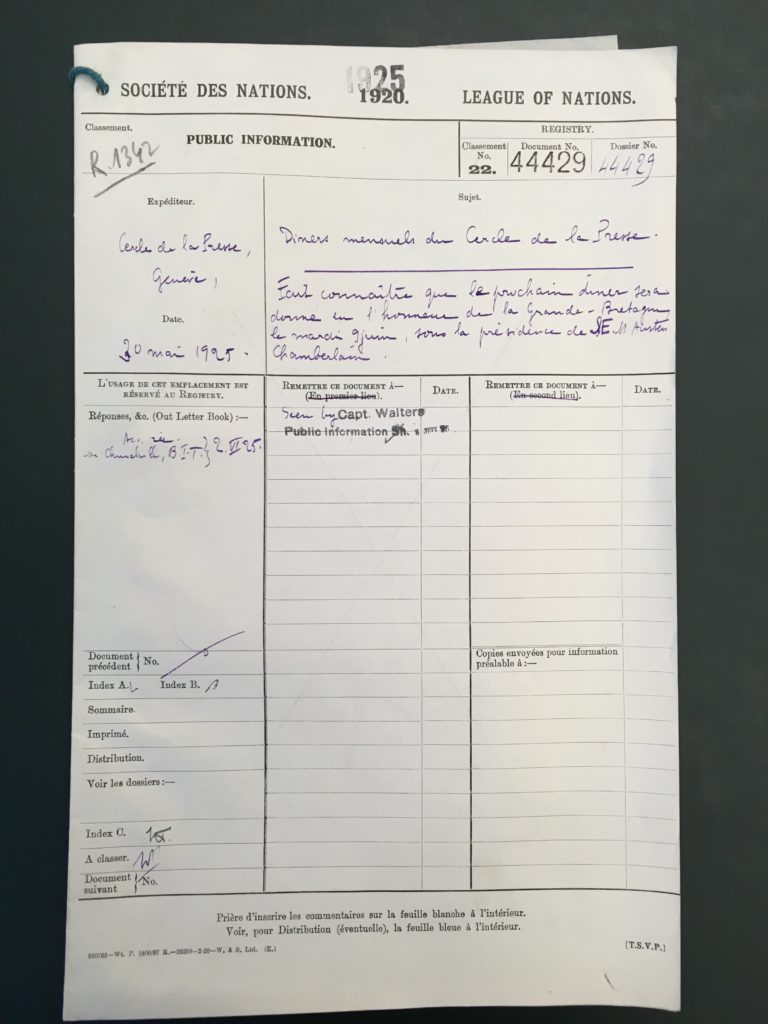 1925
SOCIÉTÉ DES NATIONS. 1920. LEAGUE OF NATIONS.
Classement.
R.1342
PUBLIC INFORMATION.
REGISTRY.
Classement No. Document No. Dossier No.
22. 44429 44429
Expéditeur.
Cercle de la Presse,
Genève,
Date.
30 mai 1925.
Sujet.
Diners mensuels du Cercle de la Presse.
Fait connaître que le prochain diner sera
donné en l'honneur de la Grande-Bretagne
le mardi 9 juin, sous la présidence de M Austen
Chamberlain.
L'USAGE DE CET EMPLACEMENT EST
RÉSERVÉ AU REGISTRY.
Réponses, &c. (Out Letter Book) :—
Churchill, B.I.T. } 2.VI.25.
REMETTRE CE DOCUMENT À—
(En premier lieu).
DATE.
Seen by Capt. Walters
Public Information
REMETTRE CE DOCUMENT À—
(En second lieu).
DATE.
Document précédent } No.
Index A. Index B.
Sommaire.
Imprimé.
Distribution.
Voir les dossiers :—
Index C.
A classer.
Document suivant } No.
Copies envoyées pour information
préalable à :—
Prière d'inscrire les commentaires sur la feuille blanche à l'intérieur.
Voir, pour Distribution (éventuelle), la feuille bleue à l'intérieur.
[T.S.V.P.]